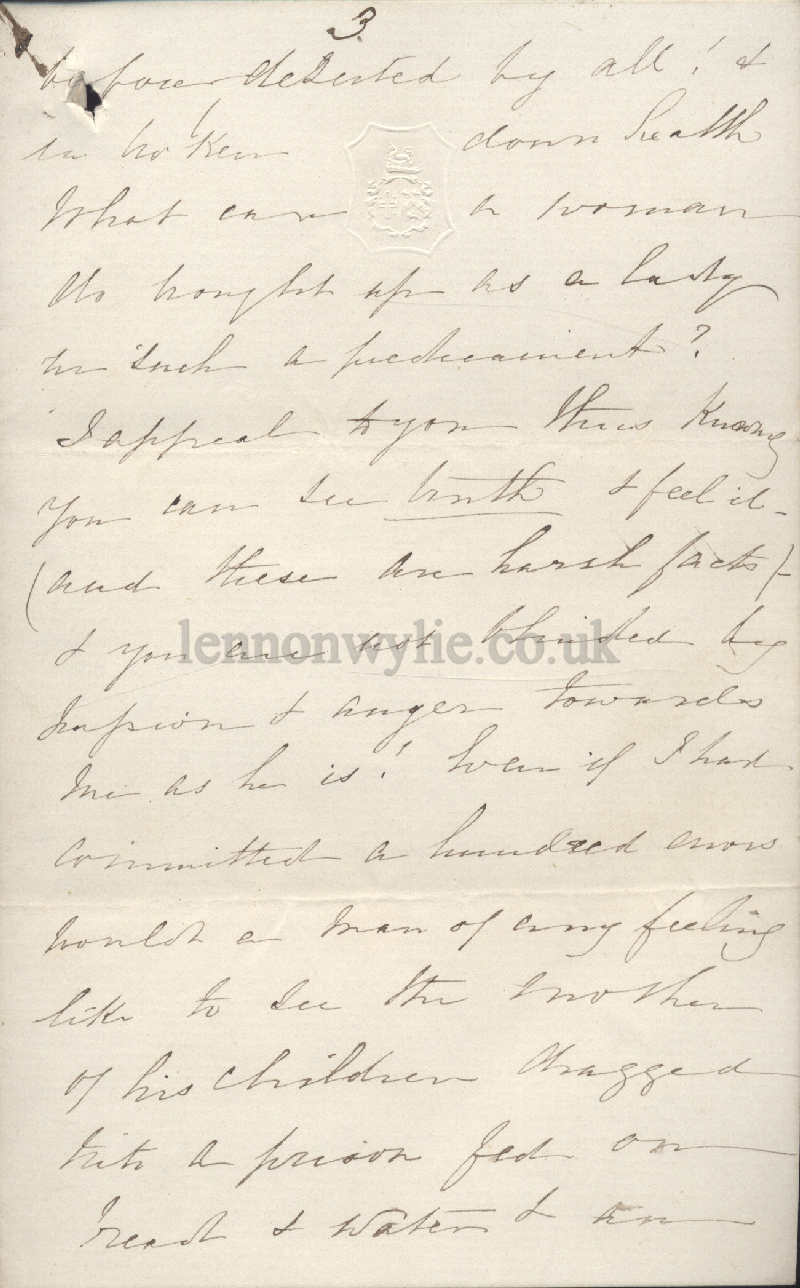 3
before deserted by all! &
in broken down health
What can a woman
do brought up as a lady
in such a predicament?
I appeal to you thus knowing
you can see truth & feel it -
(and these are harsh facts) -
& you are not blinded by
passion & anger towards
me as he is! Even if I had
committed a hundred errors
would a man of any feeling
like to see the mother
of his children dragged
into a prison fed on
bread & water & an
lennonwylie.co.uk